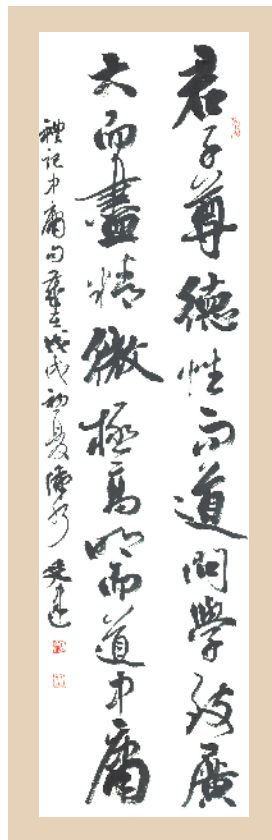 君子尊德性而道問學致廣
大而盡精微極高明而道中庸
禮記中庸句歲在戊戌初夏